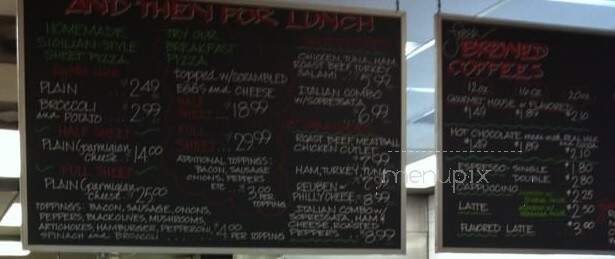 AND THEN FOR LUNCH
HOMEMADE
SICILIAN STYLE
SHEET PIZZA
PLAIN $2.49
BROCCOLI
and POTATO 2.99
HALF SHEET
PLAIN (parmigian
cheese) $14.00
FULL SHEET
PLAIN (parmigian
cheese) $25.00
TOPPINGS: BACON, SAUSAGE, ONIONS,
PEPPERS, BLACK OLIVES, MUSHROOMS,
ARTICHOKES, HAMBURGER, PEPPERONI,
SPINACH and BROCCOLI $4.00 PER TOPPING
TRY OUR
BREAKFAST
PIZZA
topped w/SCRAMBLED
EGGS and CHEESE
HALF
SHEET 18.99
FULL
SHEET 29.99
ADDITIONAL TOPPINGS:
BACON, SAUSAGE
ONIONS, PEPPERS
ETC. $2.00 PER
TOPPING
CHICKEN, TUNA, HAM
ROAST BEEF, TURKEY
SALAMI $5.99
ITALIAN COMBO
w/SOPRESSATA
6.99
ROAST BEEF, MEATBALL
CHICKEN CUTLET
HAM, TURKEY, TUNA
REUBEN or
PHILLY CHEESE 8.99
ITALIAN COMBO w/
SOPRESSATA, HAM &
CHEESE, ROASTED
PEPPERS $8.99
Fresh
BREWED
COFFEES
12oz 16oz 20oz
GOURMET HOUSE or FLAVORED
$1.49 $1.89 $2.10
HOT CHOCOLATE made with REAL MILK
and COCOA
$1.49 $1.89 $2.10
ESPRESSO SINGLE $1.80
DOUBLE $2.80
CAPPUCCINO $2.25
LATTE $2.50
FLAVORED LATTE $3.00
menupix